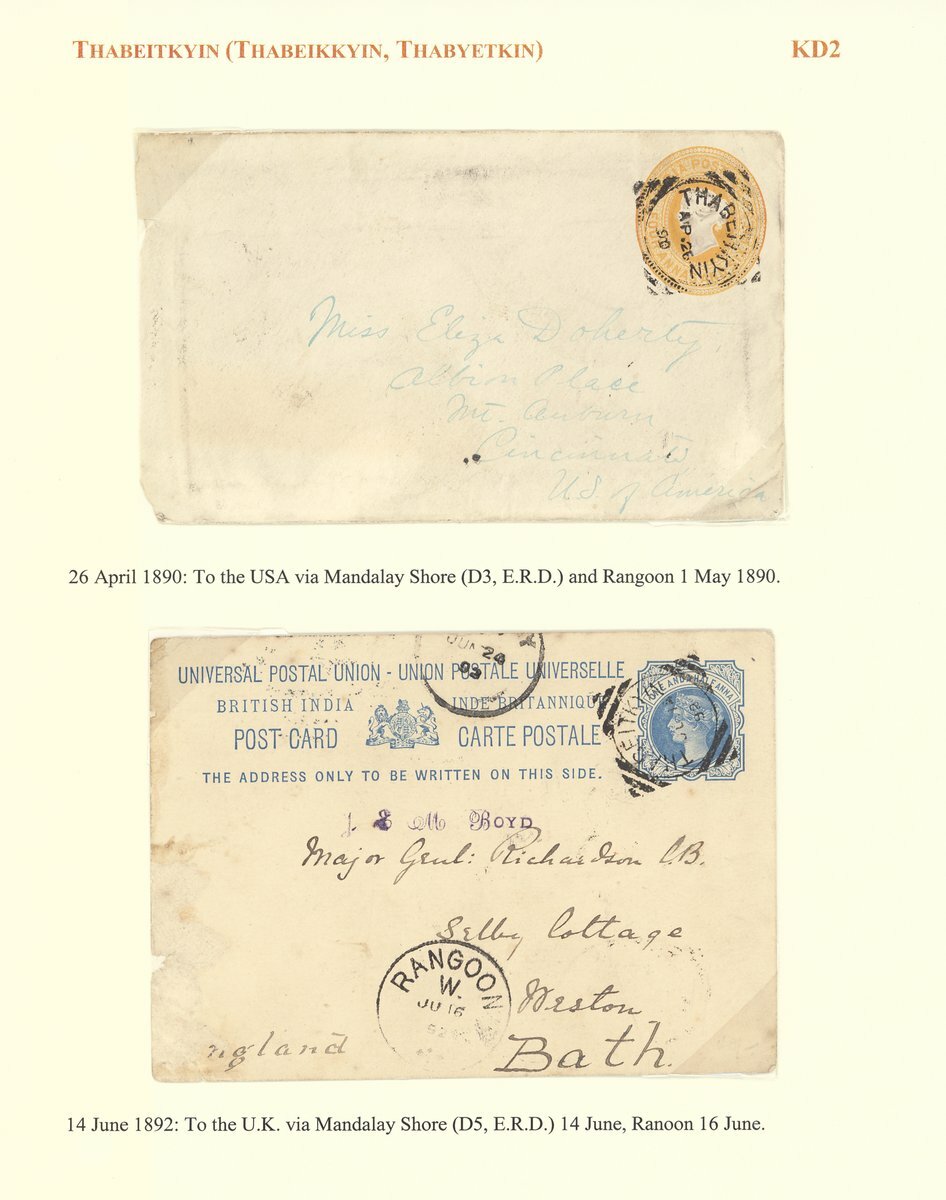 THABEITKYIN (THABEIKKYIN, THABYETKIN) KD2
THABEITKYIN
AP. 26
90
Miss Eliza Doherty,
Albion Place
Mt. Auburn
Cincinnati,
U.S. of America
26 April 1890: To the USA via Mandalay Shore (D3, E.R.D.) and Rangoon 1 May 1890.
UNIVERSAL POSTAL UNION - UNION POSTALE UNIVERSELLE
BRITISH INDIA INDE BRITANNIQUE
POST CARD CARTE POSTALE
THE ADDRESS ONLY TO BE WRITTEN ON THIS SIDE.
ONE AND A HALF ANNA
J. E M BOYD
Major Genl: Richardson C.B.
Selby Cottage
RANGOON
W.
JU 16
92
Weston
Bath.
ngland
14 June 1892: To the U.K. via Mandalay Shore (D5, E.R.D.) 14 June, Ranoon 16 June.